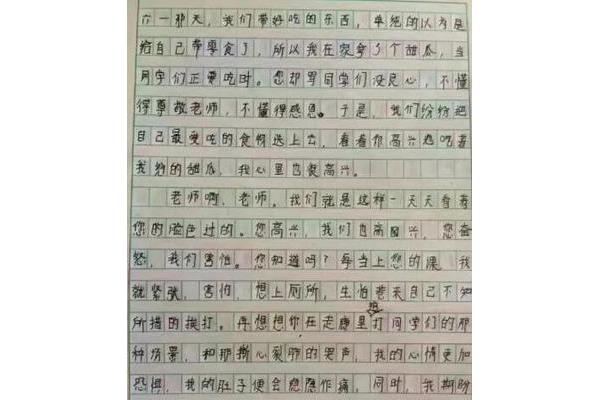 六一那天，我们带好吃的东西，单纯的以为是
给自己带零食了，所以我在家拿了个甜瓜，当
同学们正要吃时。您却骂同学们没良心，不懂
得尊敬老师，不懂得感恩。于是，我们纷纷把
自己最爱吃的食物送上去，看着你高兴地吃着
我给的甜瓜，我心里也很高兴。
老师啊，老师，我们就是这样一天天看着
您的脸色过的。您高兴，我们也高兴，您奋
怒，我们害怕。您知道吗？每当上您的课，我
就紧张，害怕，想上厕所，生怕惹来自己不知
所措的挨打。再想想你在走廊里打同学们的那
种场景，和那撕心裂肺的哭声，我的心情更加
恐惧，我的肚子便会隐隐作痛，同时，我期盼